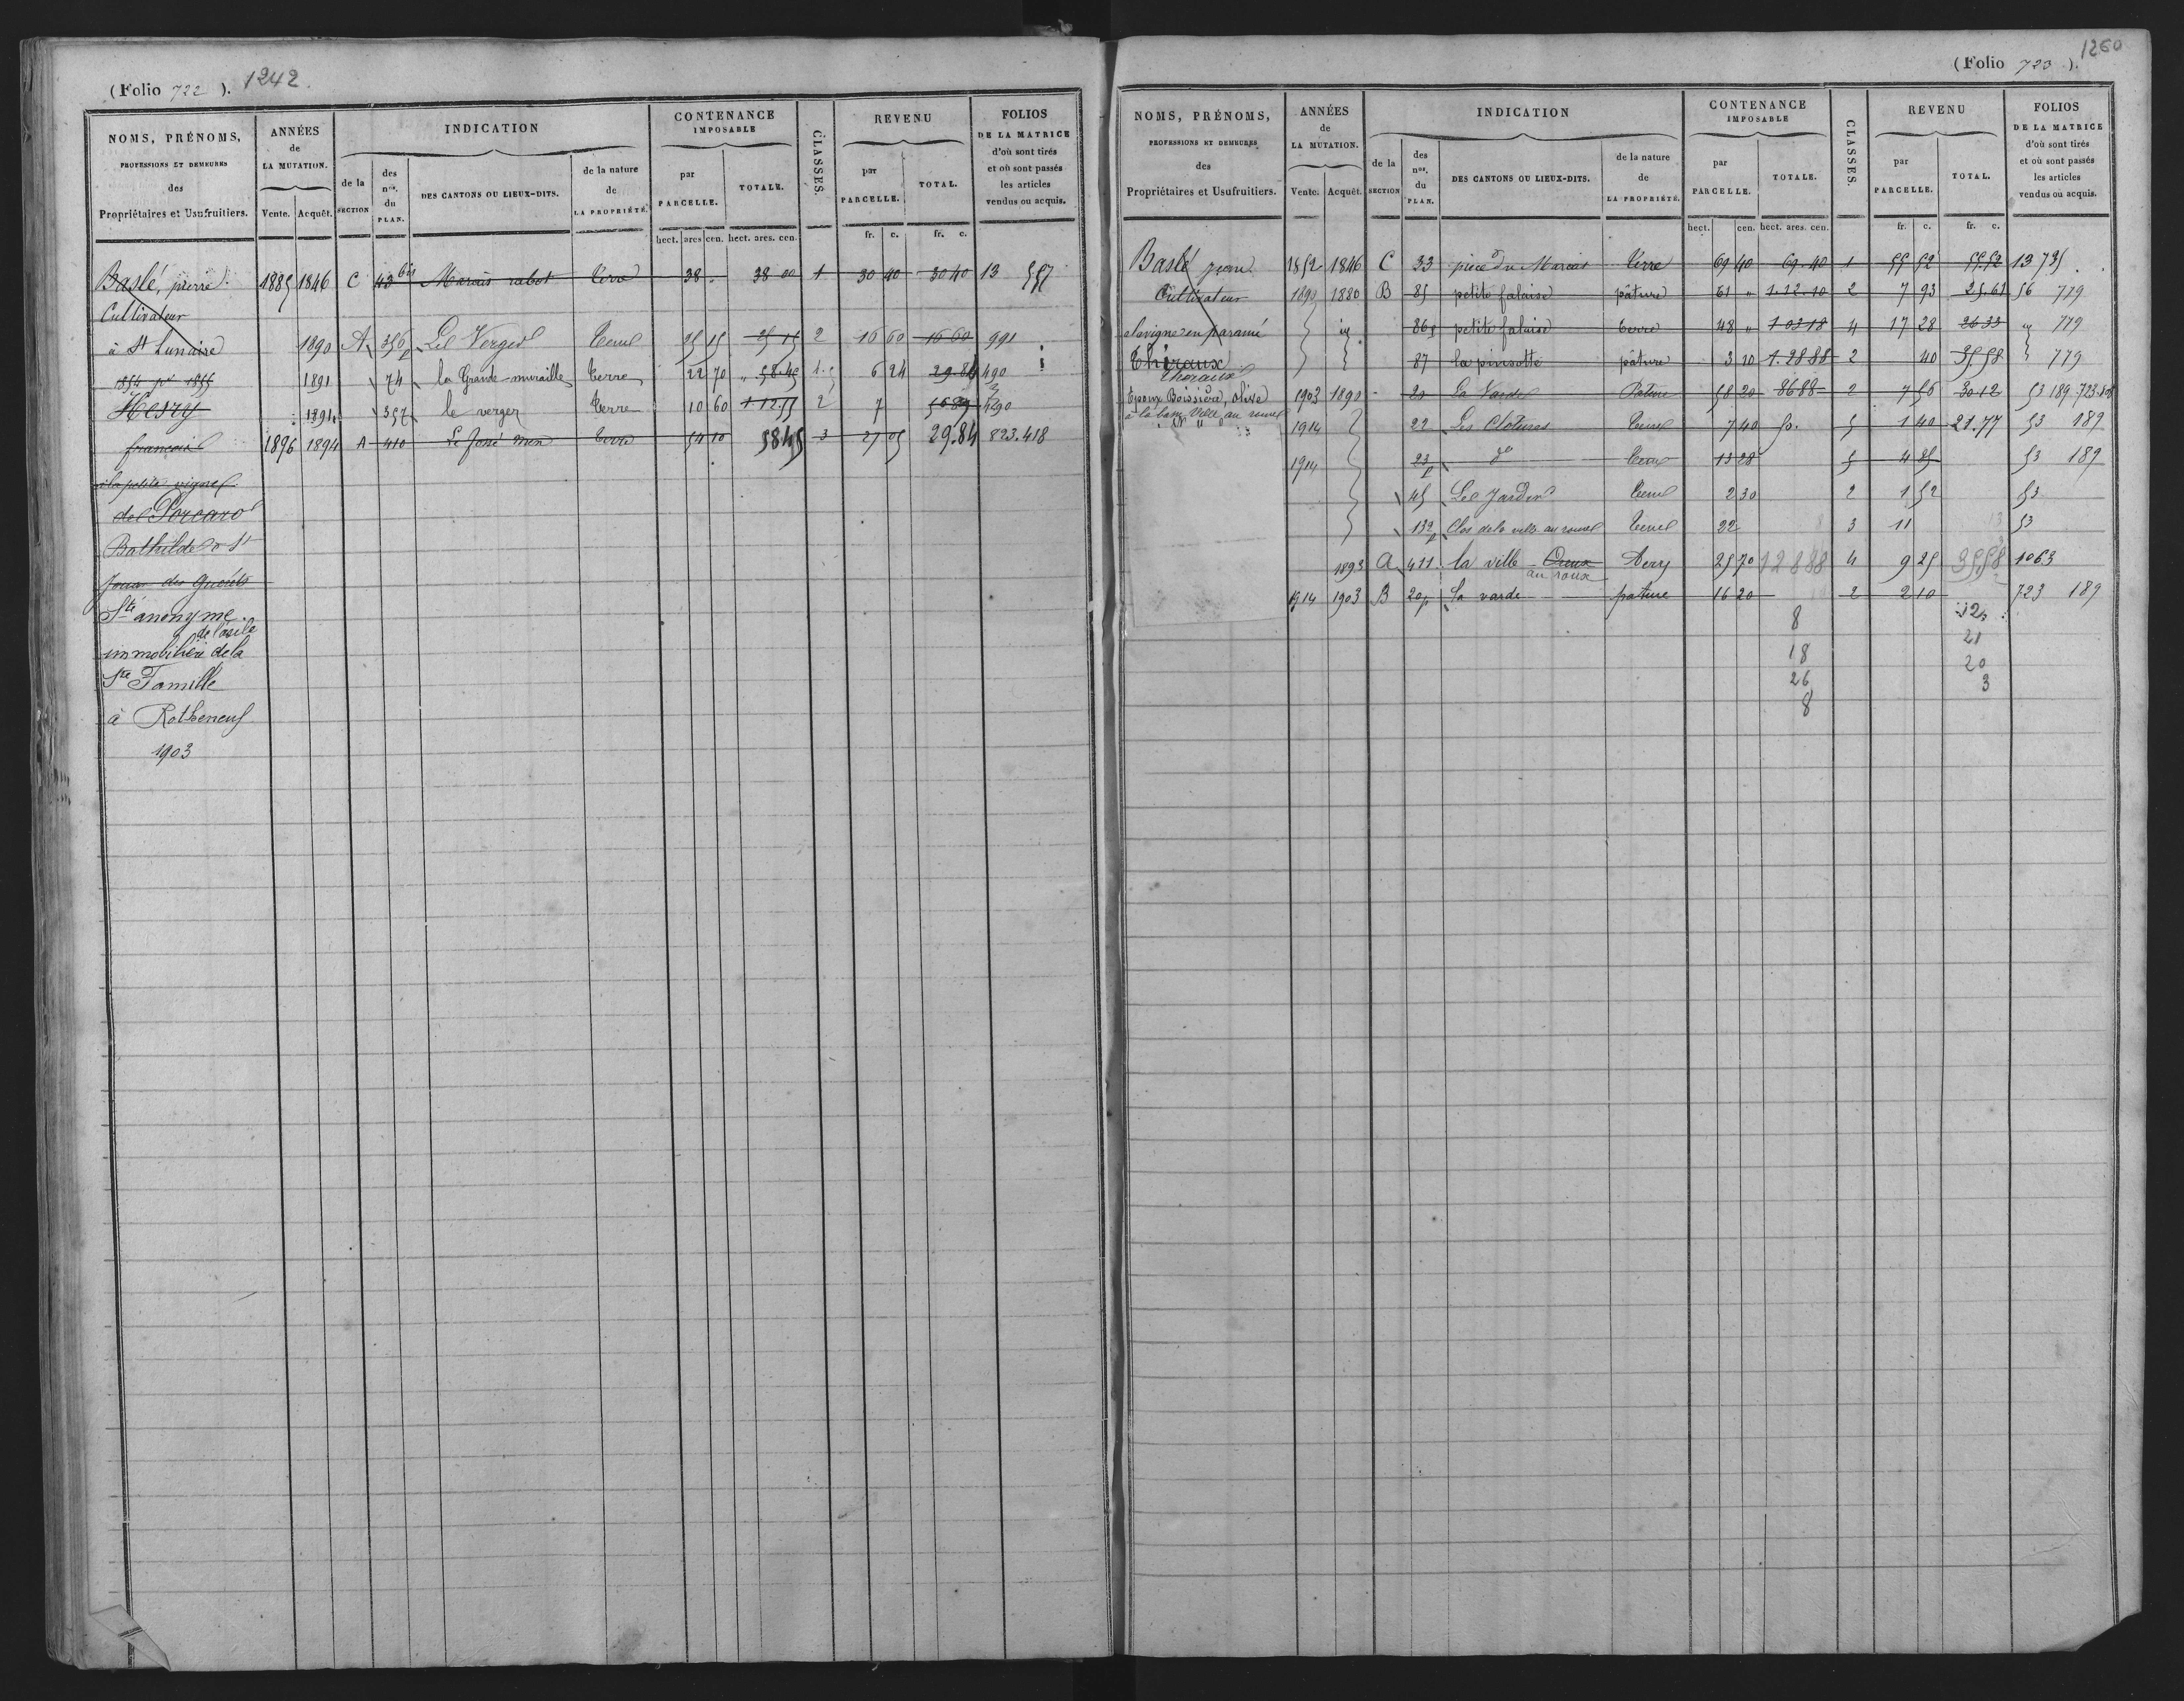 (Folio 722 ). 1242.
NOMS, PRÉNOMS,
PROFESSIONS ET DEMEURES
des
Propriétaires et Usufruitiers.
ANNÉES
de
LA MUTATION.
Vente. Acquêt.
INDICATION
de la
SECTION
des
nos.
du
PLAN.
DES CANTONS OU LIEUX-DITS.
de la nature
de
LA PROPRIÉTÉ.
CONTENANCE
IMPOSABLE
par
PARCELLE.
TOTALE.
hect. ares cen. hect. ares. cen.
CLASSES.
REVENU
par
PARCELLE.
TOTAL.
fr. c. fr. c.
FOLIOS
DE LA MATRICE
d'où sont tirés
et où sont passés
les articles
vendus ou acquis.
Baslé, pierre.
Cultivateur
à St Lunaire
1854 pr 1855
Hesry
françois
à la petite vigne
de Porcaro
Bathilde
Jouan des Guerêts
Sté anonyme
de l'asile
immobilière de la
Ste Famille
à Rotheneuf
1903
1885 1846 C 43 bis Marais rabot terre 38 . 38 00 1 30 40 30 40 13 557
1890 A 356 p Les Verges terre 25 15 25 15 2 16 60 16 60 991
1891 74 la Grande muraille terre 22 70 " 58.45 1 6 24 29.84 490
1891 357 le verger terre 10 60 1.12.55 2 7 56 89 490
1896 1894 A 410 Le fossé men terre 54 10 5845 3 27 05 29.84 823.418
(Folio 723 ). 1260
NOMS, PRÉNOMS,
PROFESSIONS ET DEMEURES
des
Propriétaires et Usufruitiers.
ANNÉES
de
LA MUTATION.
Vente. Acquêt.
INDICATION
de la
SECTION
des
nos.
du
PLAN.
DES CANTONS OU LIEUX-DITS.
de la nature
de
LA PROPRIÉTÉ.
CONTENANCE
IMPOSABLE
par
PARCELLE.
TOTALE.
hect. cen. hect. ares. cen.
CLASSES.
REVENU
par
PARCELLE.
TOTAL.
fr. c. fr. c.
FOLIOS
DE LA MATRICE
d'où sont tirés
et où sont passés
les articles
vendus ou acquis.
Baslé jean.
Cultivateur
à la vigne en paramé
Théraux
Théraux
Epoux Boissière, Olive
à la basse Ville au roux
1852 1846 C 33 pièce du Marais terre 69 40 69.40 1 55 52 55.52 13 735
1890 1880 B 85 petite falaise pâture 61 " 1.12.10 2 7 93 25.61 56 779
86 petite falaise terre 48 " 1 03 18 4 17 28 26 33 779
87 la pinsotte pâture 3 10 1.28.88 2 40 35.58 779
1903 1890 20 La Varde Pature 58 20 86 88 2 7 56 30.12 53 189.723
1914 22 Les Clotures terre 7 40 5 1 40 21.77 53 189
1914 23 p do terre 13 28 5 4 25 53 189
45 Les Jardins terre 2 30 2 1 52 53
132 p Clos de la ville au roux terre 22 3 11 53
1893 A 411 la ville au roux 25 70 12888 4 9 25 3558 1063
1914 1903 B 20p La varde pature 16 20 2 2 10 723 189
8 32
18 21
26 20
8 3